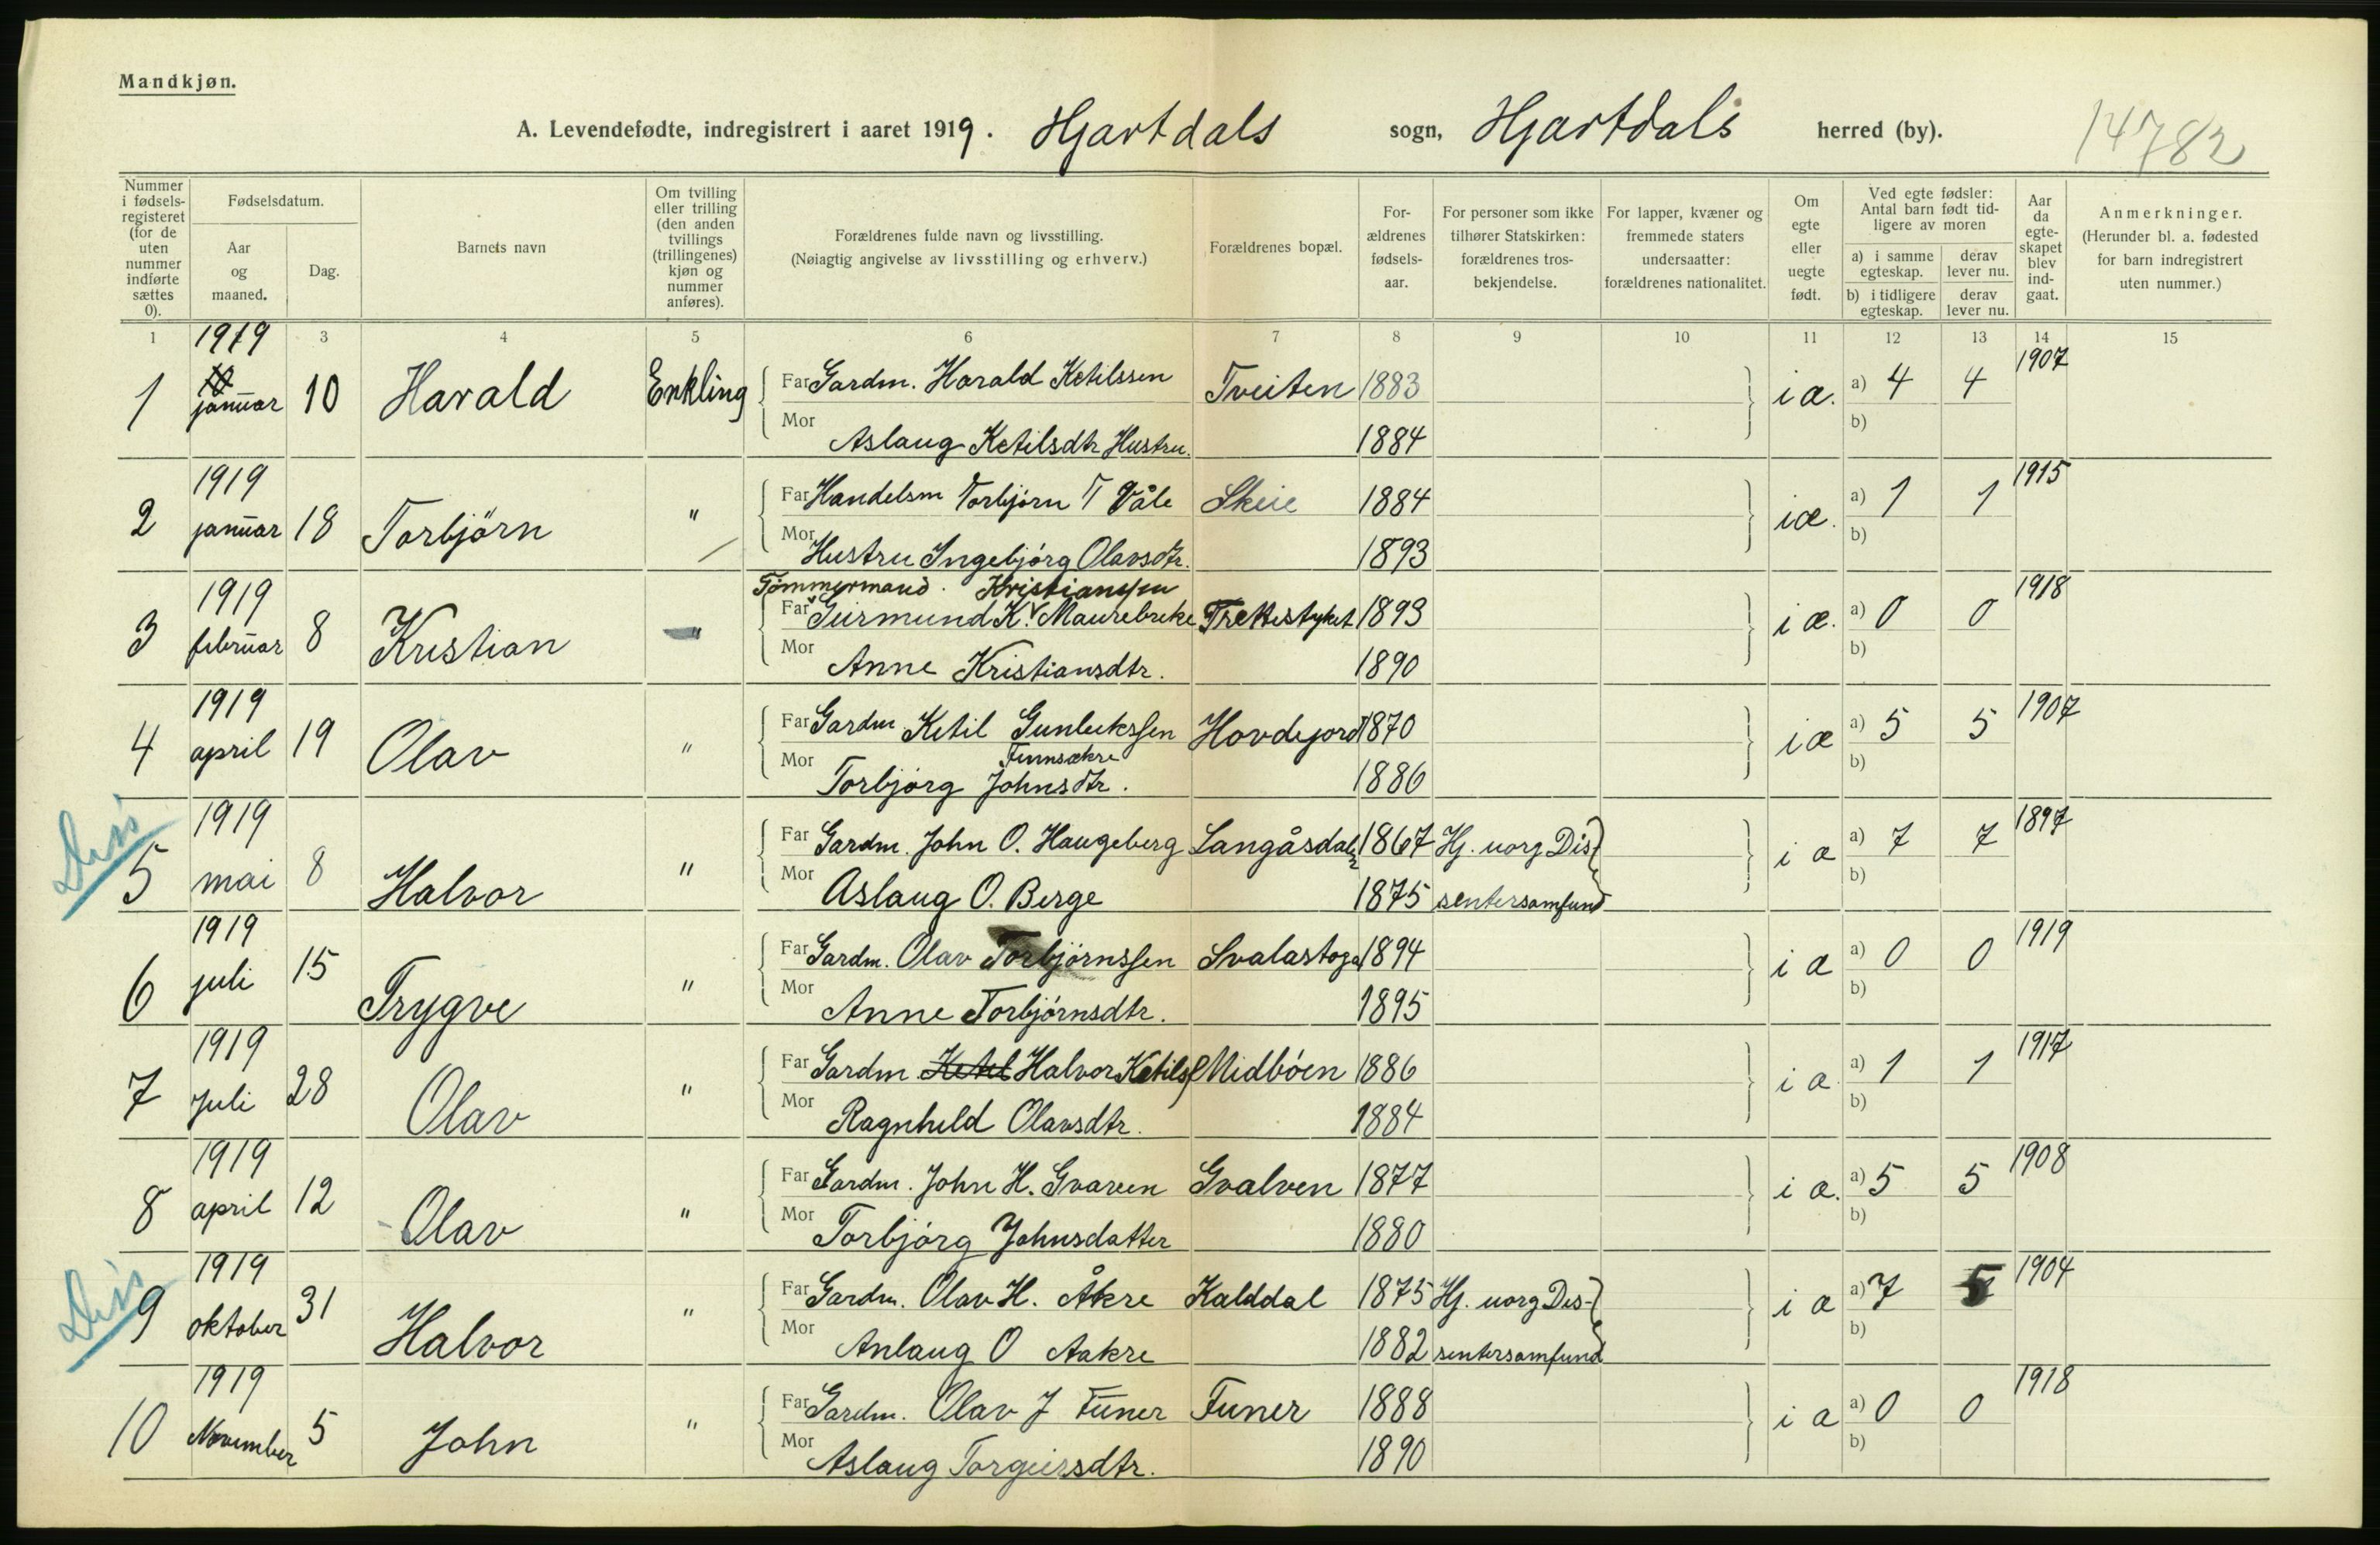 Mandkjøn.
A. Levendefødte, indregistrert i aaret 1919. Hjartdals sogn, Hjartdals herred (by). 14782
Nummer i fødsels-registeret (for de uten nummer indførte sættes 0).
Fødselsdatum.
Aar og maaned.
Dag.
Barnets navn
Om tvilling eller trilling (den anden tvillings (trillingenes) kjøn og nummer anføres).
Forældrenes fulde navn og livsstilling.
(Nøiagtig angivelse av livsstilling og erhverv.)
Forældrenes bopæl.
For-ældrenes fødsels-aar.
For personer som ikke tilhører Statskirken: forældrenes tros-bekjendelse.
For lapper, kvæner og fremmede staters undersaatter: forældrenes nationalitet.
Om egte eller uegte født.
Ved egte fødsler: Antal barn født tid-ligere av moren
a) i samme egteskap.
derav lever nu.
b) i tidligere egteskap.
derav lever nu.
Aar da egte-skapet blev ind-gaat.
Anmerkninger.
(Herunder bl. a. fødested for barn indregistrert uten nummer.)
1 3 4 5 6 7 8 9 10 11 12 13 14 15
1 1919 januar 10 Harald Enkling Far Gardm. Harald Ketilssen Tveiten 1883 i æ. a) 4 4 1907
Mor Aslaug Ketilsdtr Hustru. 1884 b)
2 1919 januar 18 Torbjörn " Far Handelsm Torbjörn T Våle Skeie 1884 iæ. a) 1 1 1915
Mor Hustru Ingebjörg Olavsdtr. 1893 b)
Tömmermand. Kristianssen
3 1919 februar 8 Kristian " Far Geirmund K. Maurebrekke Trettestyket 1893 i æ. a) 0 0 1918
Mor Anne Kristiansdtr. 1890 b)
4 1919 april 19 Olav " Far Gardm Ketil Gunleikssen Hovdejord 1870 iæ a) 5 5 1907
Finnsækre
Mor Torbjörg Johnsdtr. 1886 b)
Diss
5 1919 mai 8 Halvor " Far Gardm. John O. Haugeberg Langåsdalen 1867 Hj. uorg Dis- i æ a) 7 7 1897
Mor Aslaug O. Berge 1875 sentersamfund b)
6 1919 juli 15 Trygve " Far Gardm. Olav Torbjørnssen Svalastoga 1894 i æ a) 0 0 1919
Mor Anne Torbjørnsdtr. 1895 b)
7 1919 Juli 28 Olav " Far Gardm Ketil Halvor Ketilss Midböen 1886 i æ a) 1 1 1917
Mor Ragnhild Olavsdtr. 1884 b)
8 1919 april 12 Olav " Far Gardm. John H. Gvaven Gvalven 1877 i æ. a) 5 5 1908
Mor Torbjörg Johnsdatter 1880 b)
Diss
9 1919 oktober 31 Halvor " Far Gardm. Olav H. Åkre Kalddal 1875 Hj. uorg Dis- i æ a) 7 5 1904
Mor Anlaug O Aakre 1882 sentersamfund b)
10 1919 November 5 John " Far Gardm. Olav J Funer Funer 1888 i æ a) 0 0 1918
Mor Aslaug Torgeirsdtr. 1890 b)